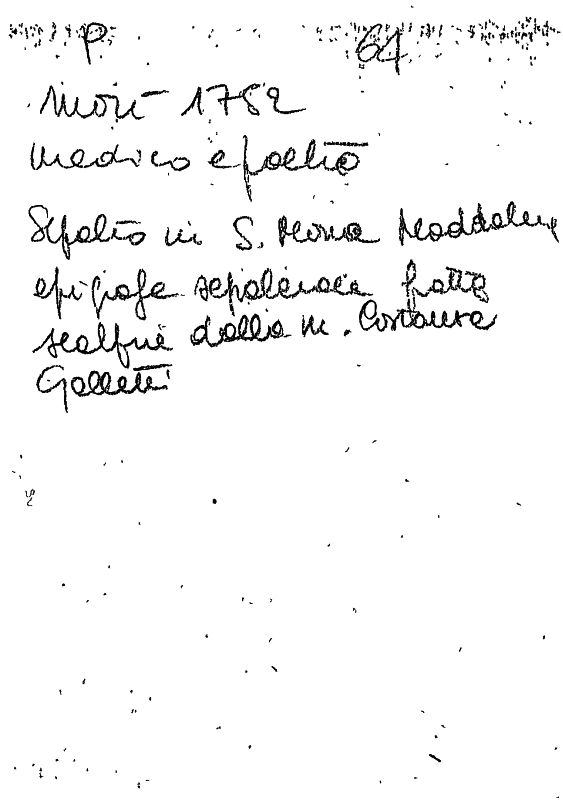 P 64
Morì 1752
medico e poeta
Sepolto in S. Maria Maddalena
epigrafe sepolcrale fatta
scolpire dalla m. Costanza
Galletti